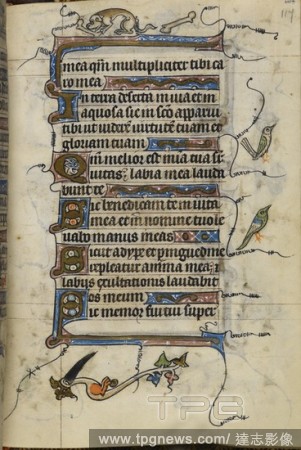 mea qm multipliciter tibi ca
ro mea
In terra deserta in uia et in
aquosa sic in sco apparui
tibi ut uiderē uirtutē tuam et
gloriam tuam
Qm melior est mia tua sr
uitas: labia mea lauda
bunt te
Sic benedicam te in uita
mea et in nomine tuo le
uabo manus meas
Sicut adipe et pinguedine
repleatur anima mea: et
labiis exultationis laudabit
os meum
Sic memor fui tui super
TPG
www.tpgnews.com/ 達志影像